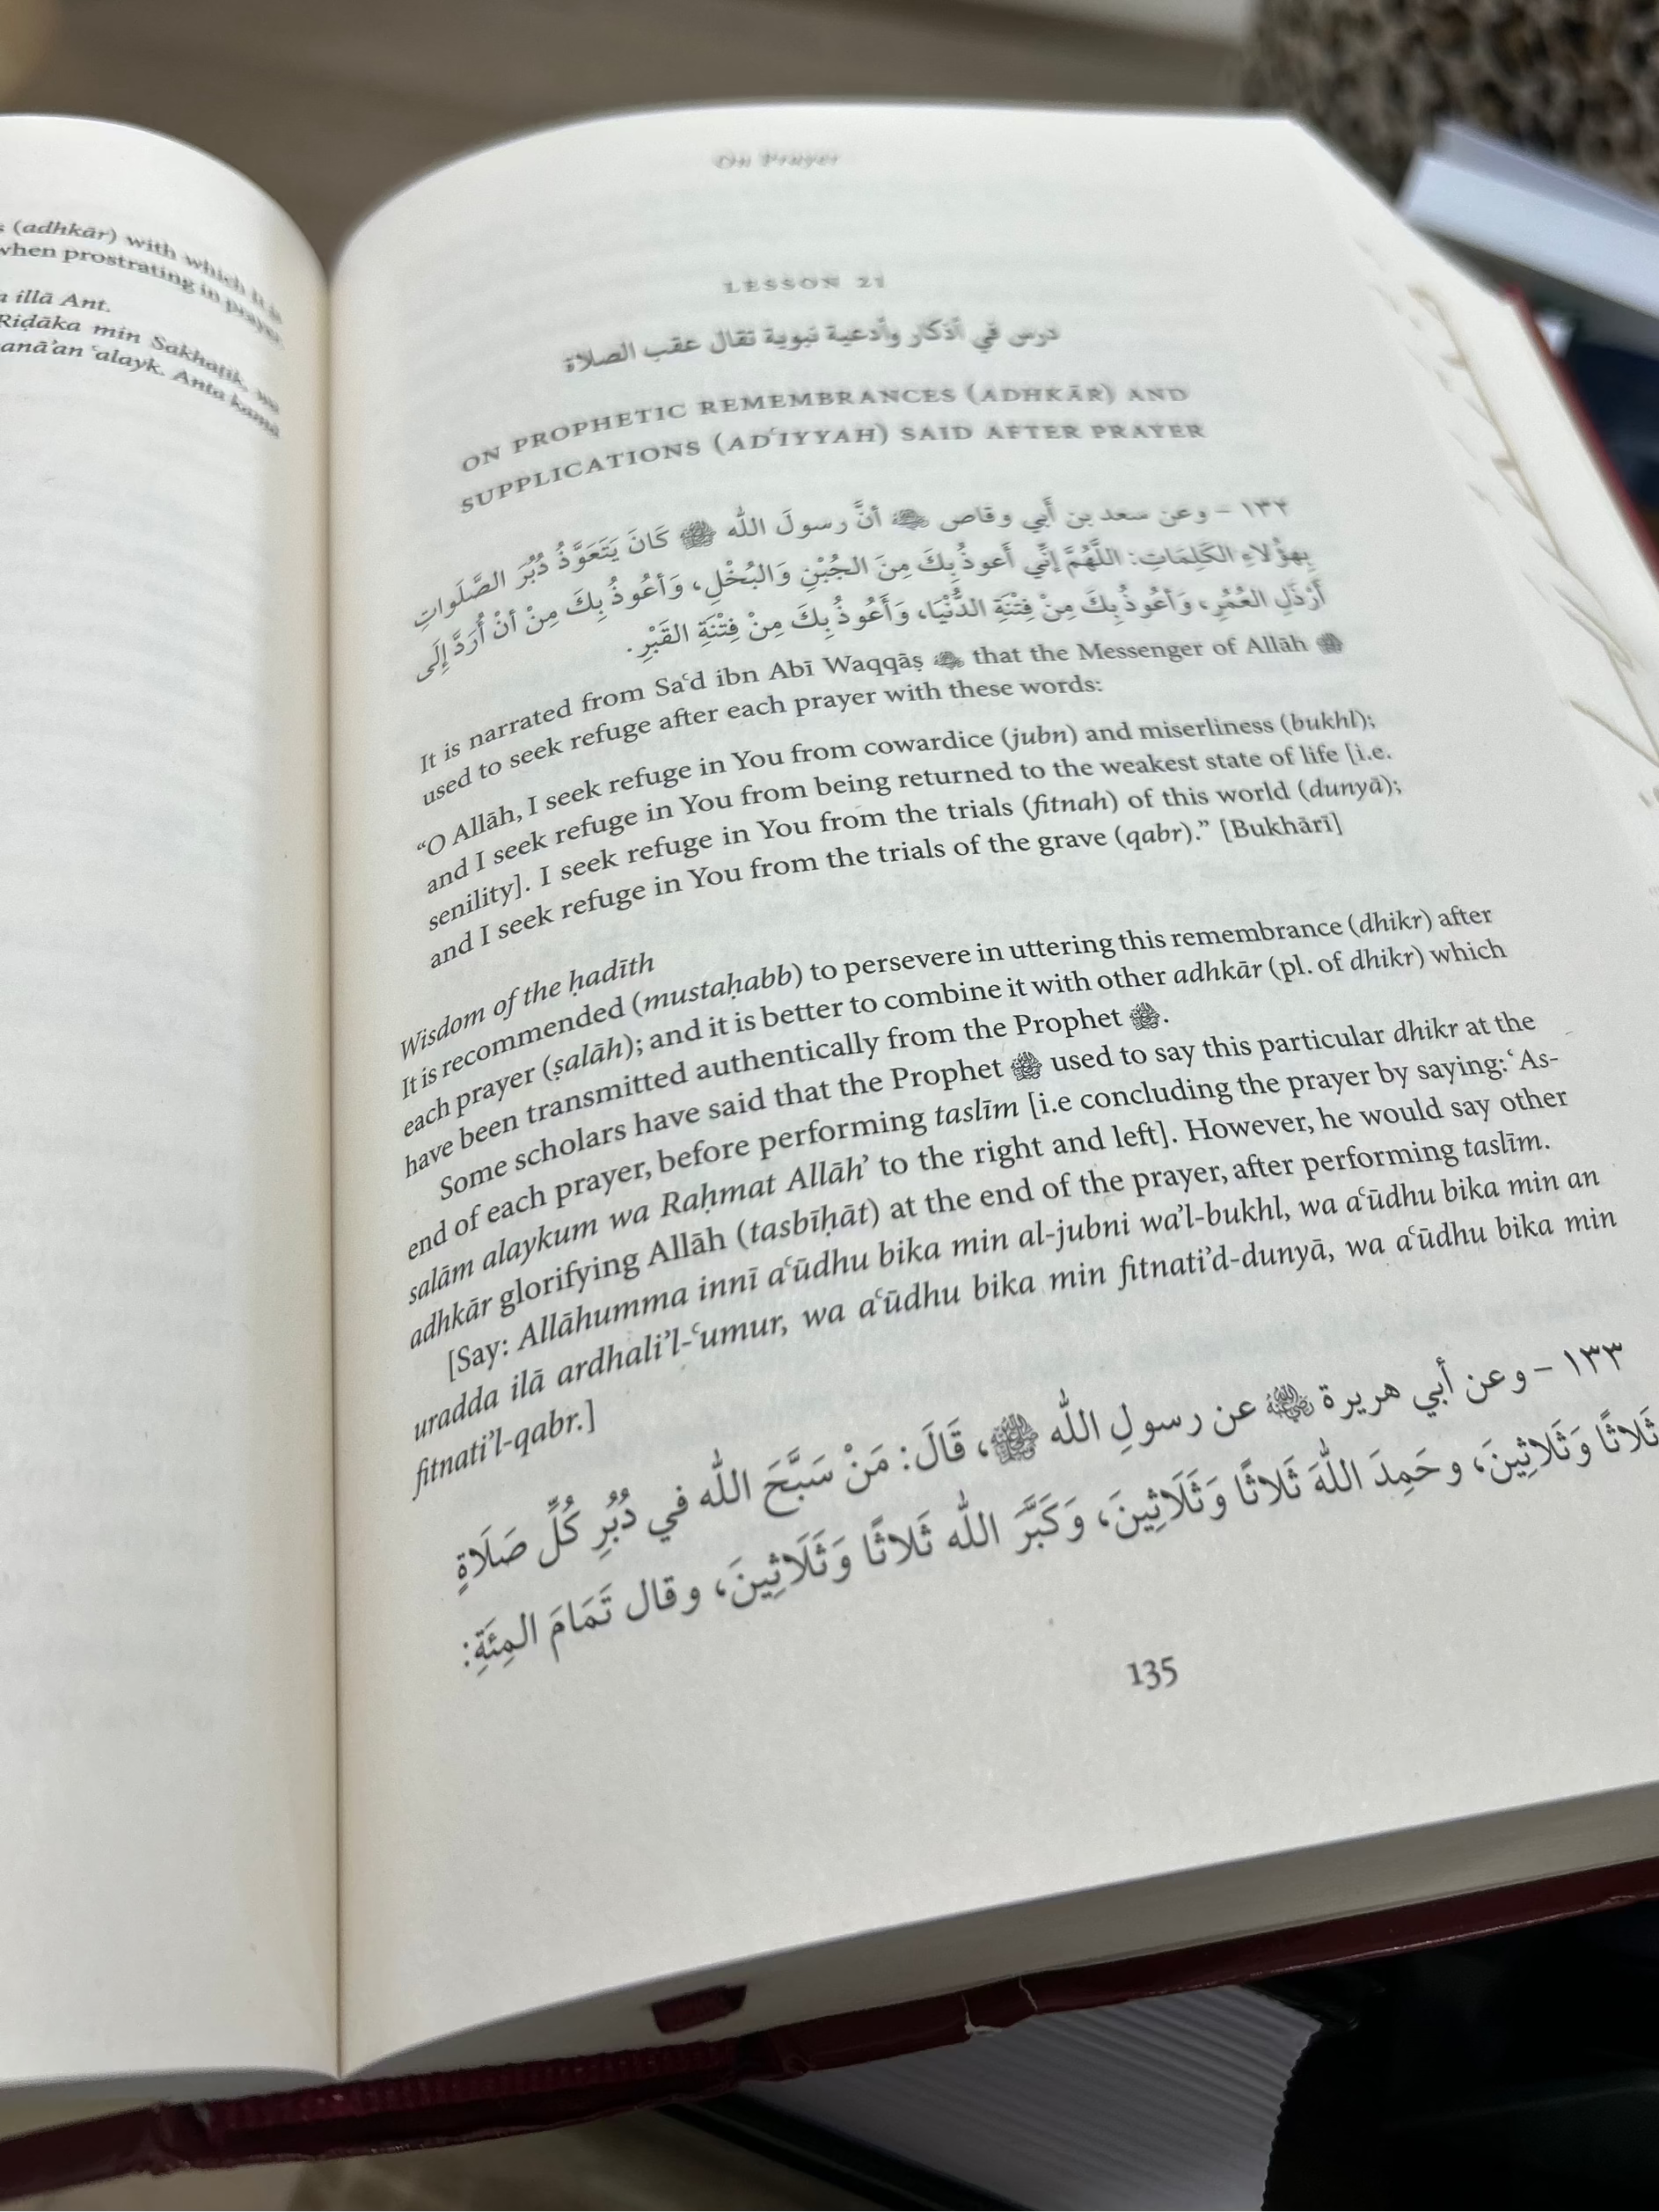 (adhkār) with which
when prostrating in prayer
illā Ant.
Riḍāka min Sakhaṭik, wa
anā’an ʿalayk. Anta kama
On Prayer
LESSON 21
درس في أذكار وأدعية نبوية تقال عقب الصلاة
ON PROPHETIC REMEMBRANCES (ADHKĀR) AND
SUPPLICATIONS (ADʿIYYAH) SAID AFTER PRAYER
١٣٢ – وعن سعد بن أبي وقاص ﷺ أنَّ رسولَ الله ﷺ كَانَ يَتَعَوَّذُ دُبُرَ الصَّلَواتِ
بِهؤُلاءِ الكَلِمَاتِ: اللَّهُمَّ إنِّي أَعوذُ بِكَ مِنَ الجُبْنِ وَالبُخْلِ، وَأعُوذُ بِكَ مِنْ أنْ أُرَدَّ إِلَى
أَرْذَلِ العُمُرِ، وَأعُوذُ بِكَ مِنْ فِتْنَةِ الدُّنْيَا، وَأَعُوذُ بِكَ مِنْ فِتْنَةِ القَبْرِ.
It is narrated from Saʿd ibn Abī Waqqāṣ that the Messenger of Allāh ﷺ
used to seek refuge after each prayer with these words:
“O Allāh, I seek refuge in You from cowardice (jubn) and miserliness (bukhl);
and I seek refuge in You from being returned to the weakest state of life [i.e.
senility]. I seek refuge in You from the trials (fitnah) of this world (dunyā);
and I seek refuge in You from the trials of the grave (qabr).” [Bukhārī]
Wisdom of the ḥadīth
It is recommended (mustaḥabb) to persevere in uttering this remembrance (dhikr) after
each prayer (ṣalāh); and it is better to combine it with other adhkār (pl. of dhikr) which
have been transmitted authentically from the Prophet ﷺ.
Some scholars have said that the Prophet ﷺ used to say this particular dhikr at the
end of each prayer, before performing taslīm [i.e concluding the prayer by saying:ʿAs-
salām alaykum wa Raḥmat Allāh’ to the right and left]. However, he would say other
adhkār glorifying Allāh (tasbīḥāt) at the end of the prayer, after performing taslīm.
[Say: Allāhumma innī aʿūdhu bika min al-jubni wa’l-bukhl, wa aʿūdhu bika min an
uradda ilā ardhali’l-ʿumur, wa aʿūdhu bika min fitnati’d-dunyā, wa aʿūdhu bika min
fitnati’l-qabr.]
١٣٣ – وعن أبي هريرة ﷺ عن رسولِ الله ﷺ، قَالَ: مَنْ سَبَّحَ الله في دُبُرِ كُلِّ صَلَاةٍ
ثَلاثًا وَثَلاثِينَ، وحَمِدَ اللهَ ثَلاثًا وَثَلَاثِينَ، وَكَبَّرَ الله ثَلاثًا وَثَلَاثِينَ، وقال تَمَامَ المِئَةِ:
135